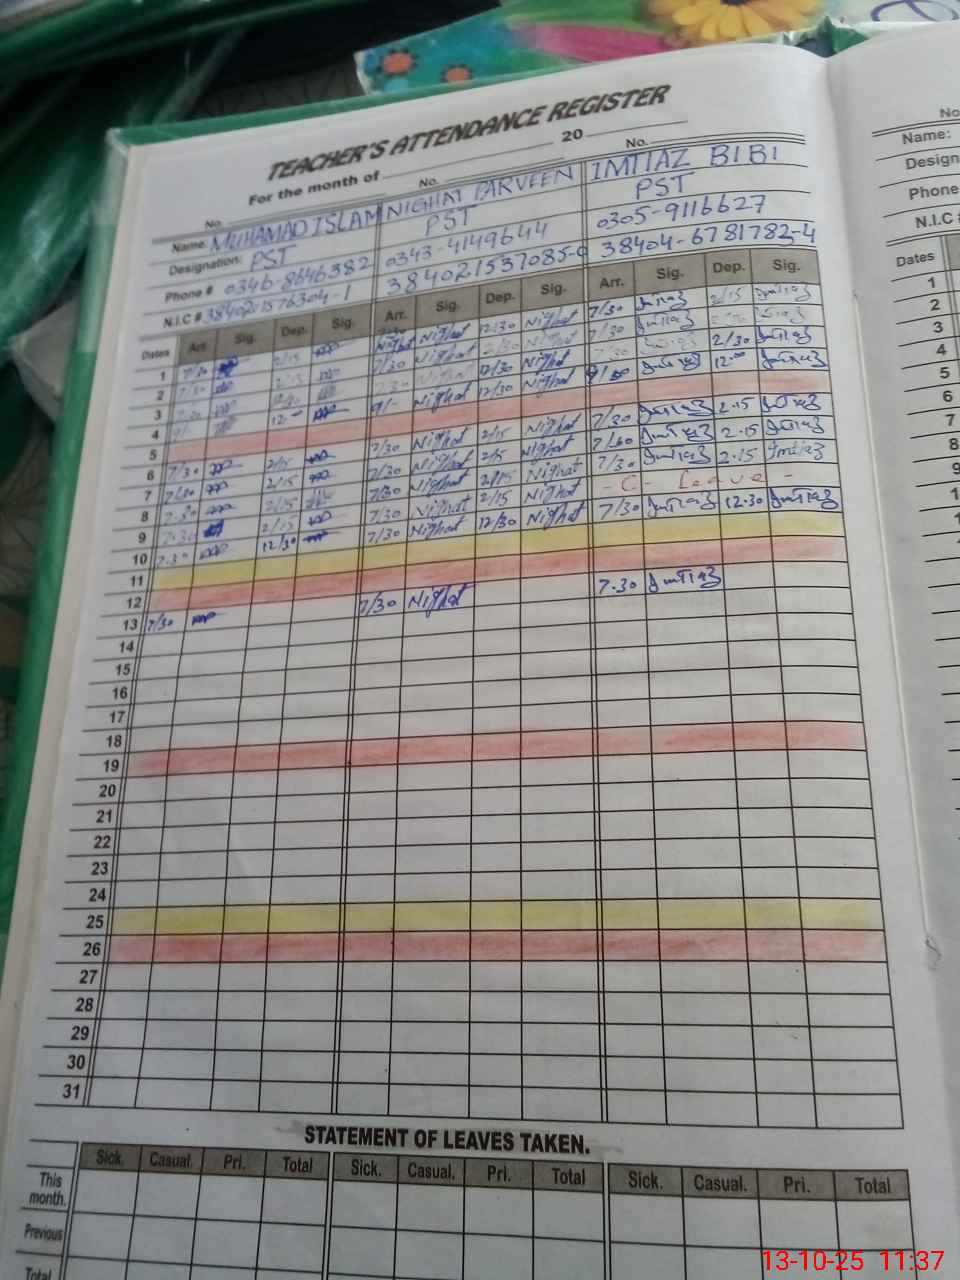 TEACHER'S ATTENDANCE REGISTER
For the month of 20
No. No. No.
Name: MUHAMAD ISLAM NIGHAT PARVEEN IMTIAZ BIBI
Designation: PST PST PST
Phone # 0346-8646382 0343-4149644 0305-9116627
N.I.C # 38404-6781782-4
Dates Arr. Sig. Dep. Sig. Arr. Sig. Dep. Sig. Arr. Sig. Dep. Sig.
1 7/30 2/15 Nighat 12/30 Nighat 7/30 Imtiaz 2/15 Imtiaz
2 7/30 2/15 7/30 Nighat 7/30 Imtiaz
3 7/30 12/30 Nighat 2/30 Imtiaz
4 9/- 12-00 9/- Nighat 12/30 Nighat Imtiaz 12-00 Imtiaz
5
6 7/30 2/15 7/30 Nighat 2/15 Nighat 7/30 Imtiaz 2-15 Imtiaz
7 7/30 2/15 7/30 Nighat 2/15 Nighat Imtiaz 2-15 Imtiaz
8 7-30 2/15 7/30 Nighat 2/15 Nighat 7/30 Imtiaz 2-15 Imtiaz
9 7-30 2/15 7/30 Nighat 2/15 Nighat - C - Leave -
10 7-30 12/30 7/30 Nighat 12/30 Nighat 7/30 Imtiaz 12-30 Imtiaz
11
12
13 7/30 7/30 Nighat 7-30 Imtiaz
14
15
16
17
18
19
20
21
22
23
24
25
26
27
28
29
30
31
STATEMENT OF LEAVES TAKEN.
Sick. Casual. Pri. Total Sick. Casual. Pri. Total Sick. Casual. Pri. Total
This month.
Previous
Total
No
Name:
Design
Phone
N.I.C
Dates
1
2
3
4
5
6
7
8
13-10-25 11:37